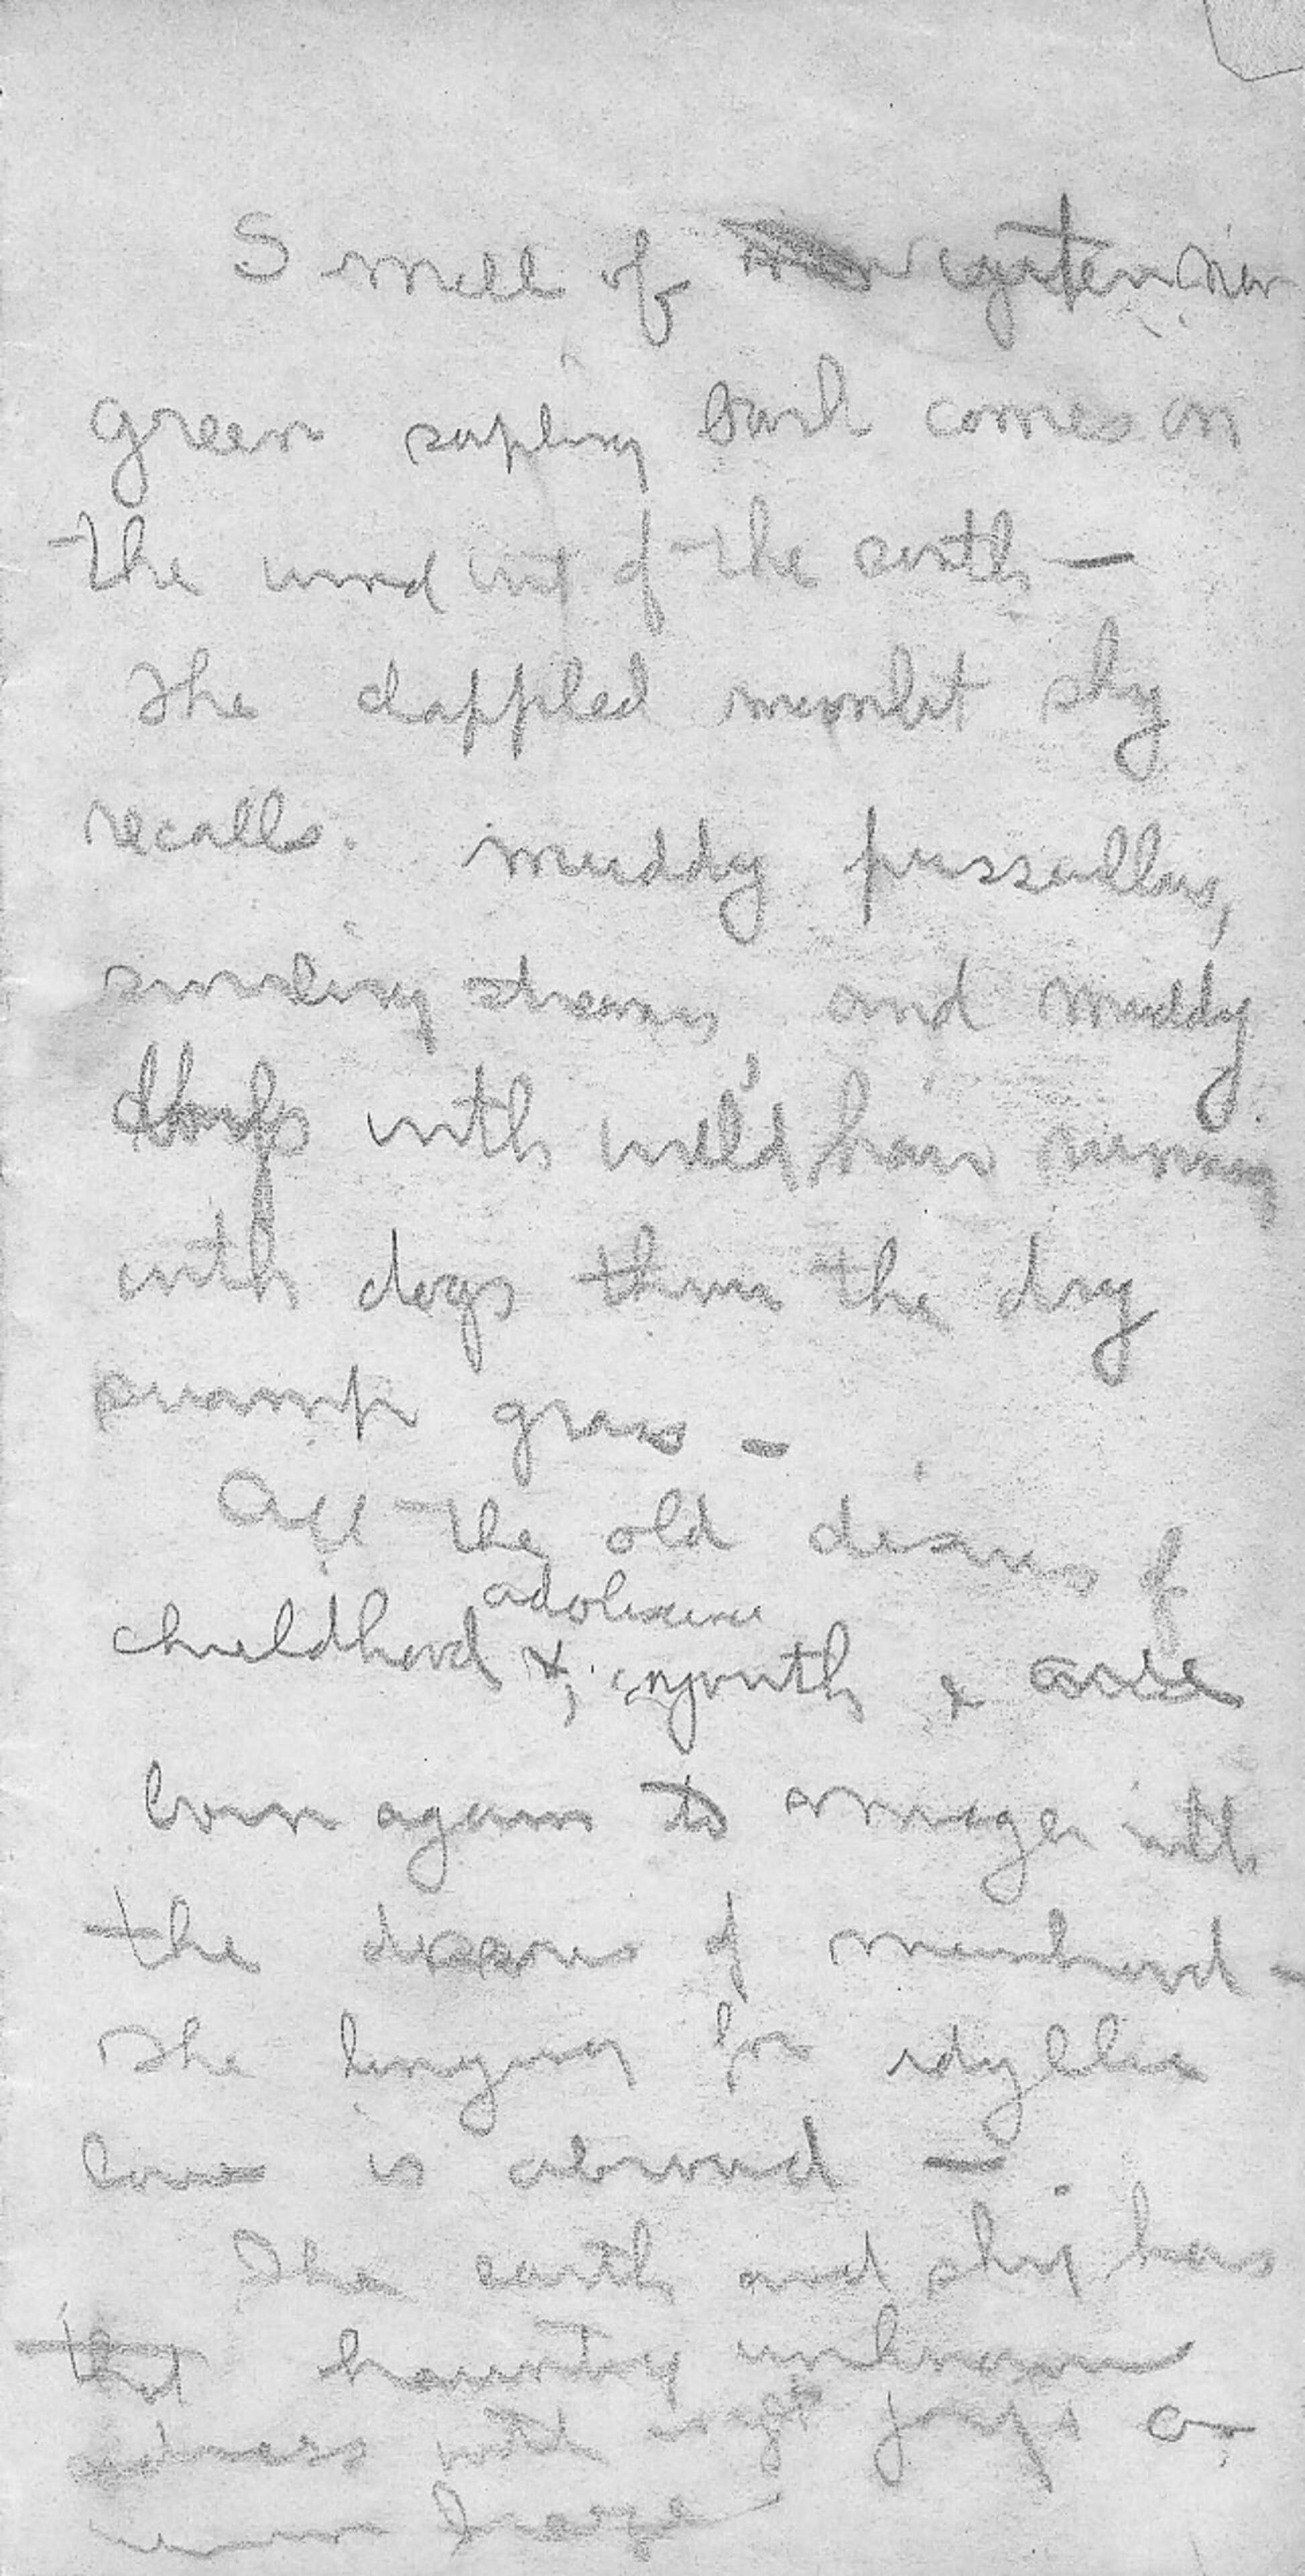 Smell of
green sapling bark comes on
the wind out of the earth —
The dappled moonlit sky
recalls. muddy pussywillows,
swirling streams, and muddy
with wild hair running
with dogs thru the dry
swamp grass —
All the old desires of
adolescence
childhood &, youth, &
born again to with
the desires of manhood -
The longing for idyllic
love is abroad —
The earth and sky has
that haunting unknown